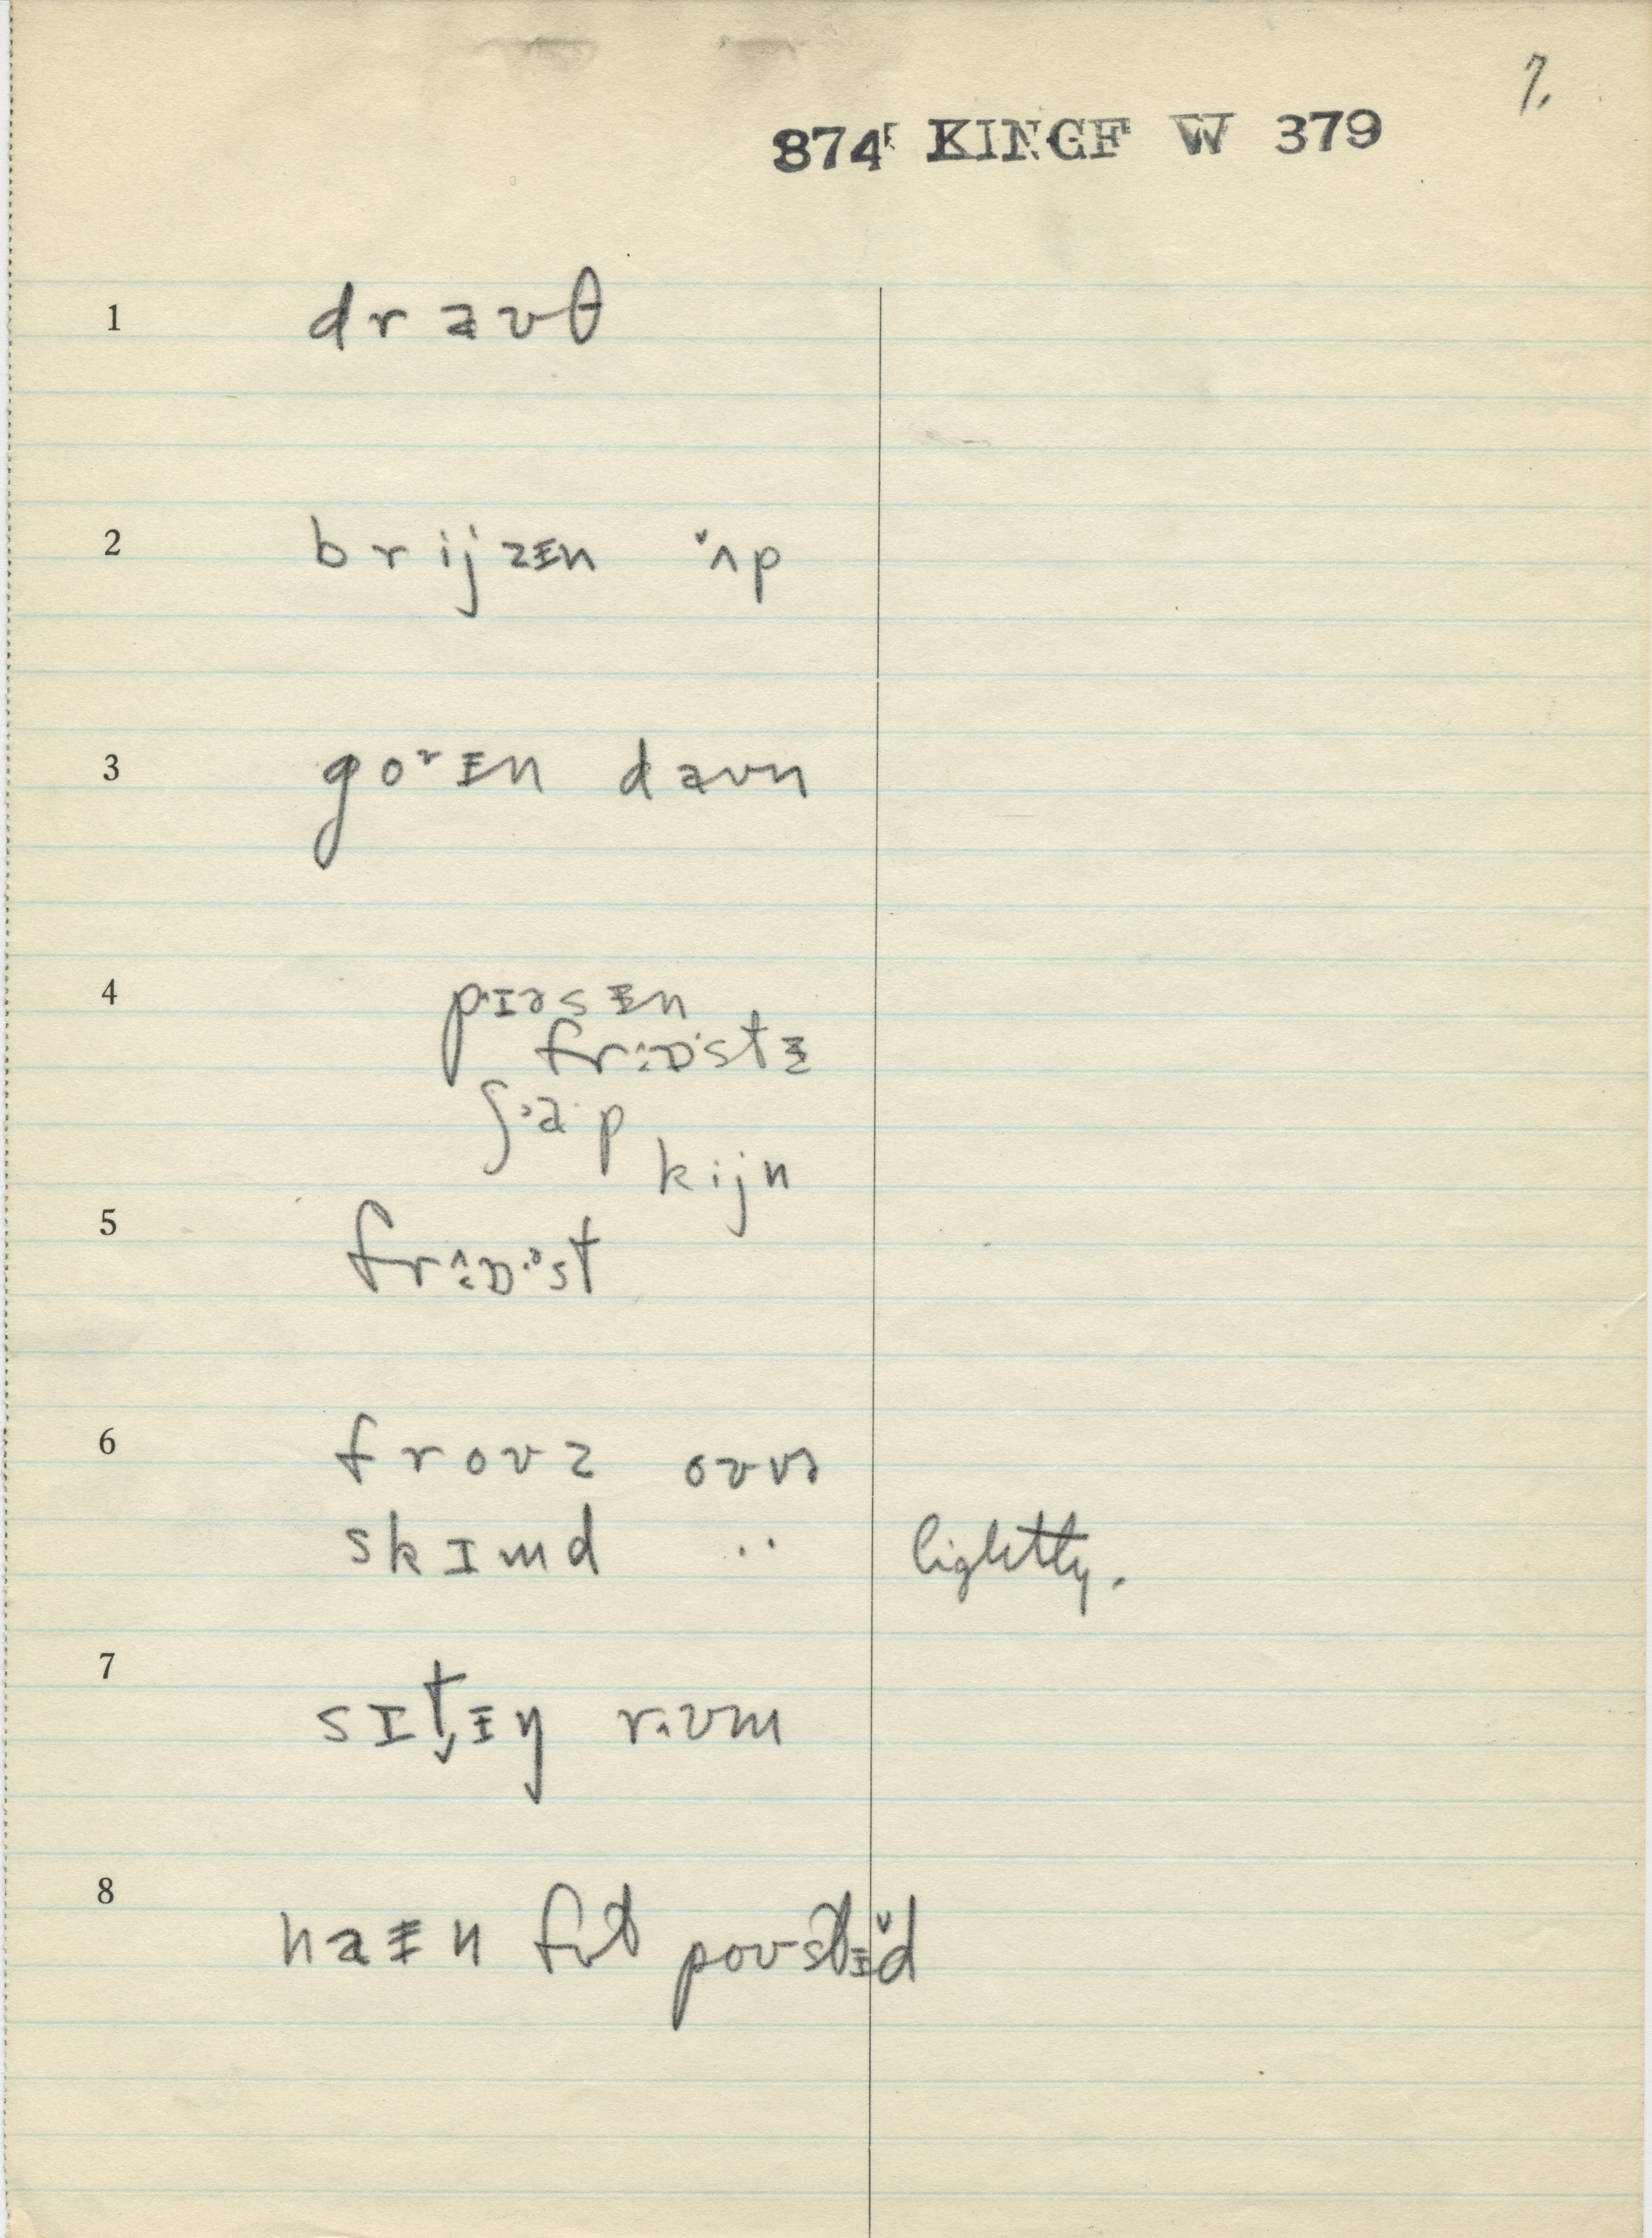 7.
874 KINGF W 379
1 draʊθ
2 brijzɨn ʌ̌p
3 goɚɨn daʊn
4 pɪəsɨn
frɒstɨ
ʃap
kijn
5 frɒst
6 froʊz oʊvɚ
skɪmd ·· lightly.
7 sɪt̬ɨŋ rʊm
8 naɨn fʊt poʊstɨ̌d